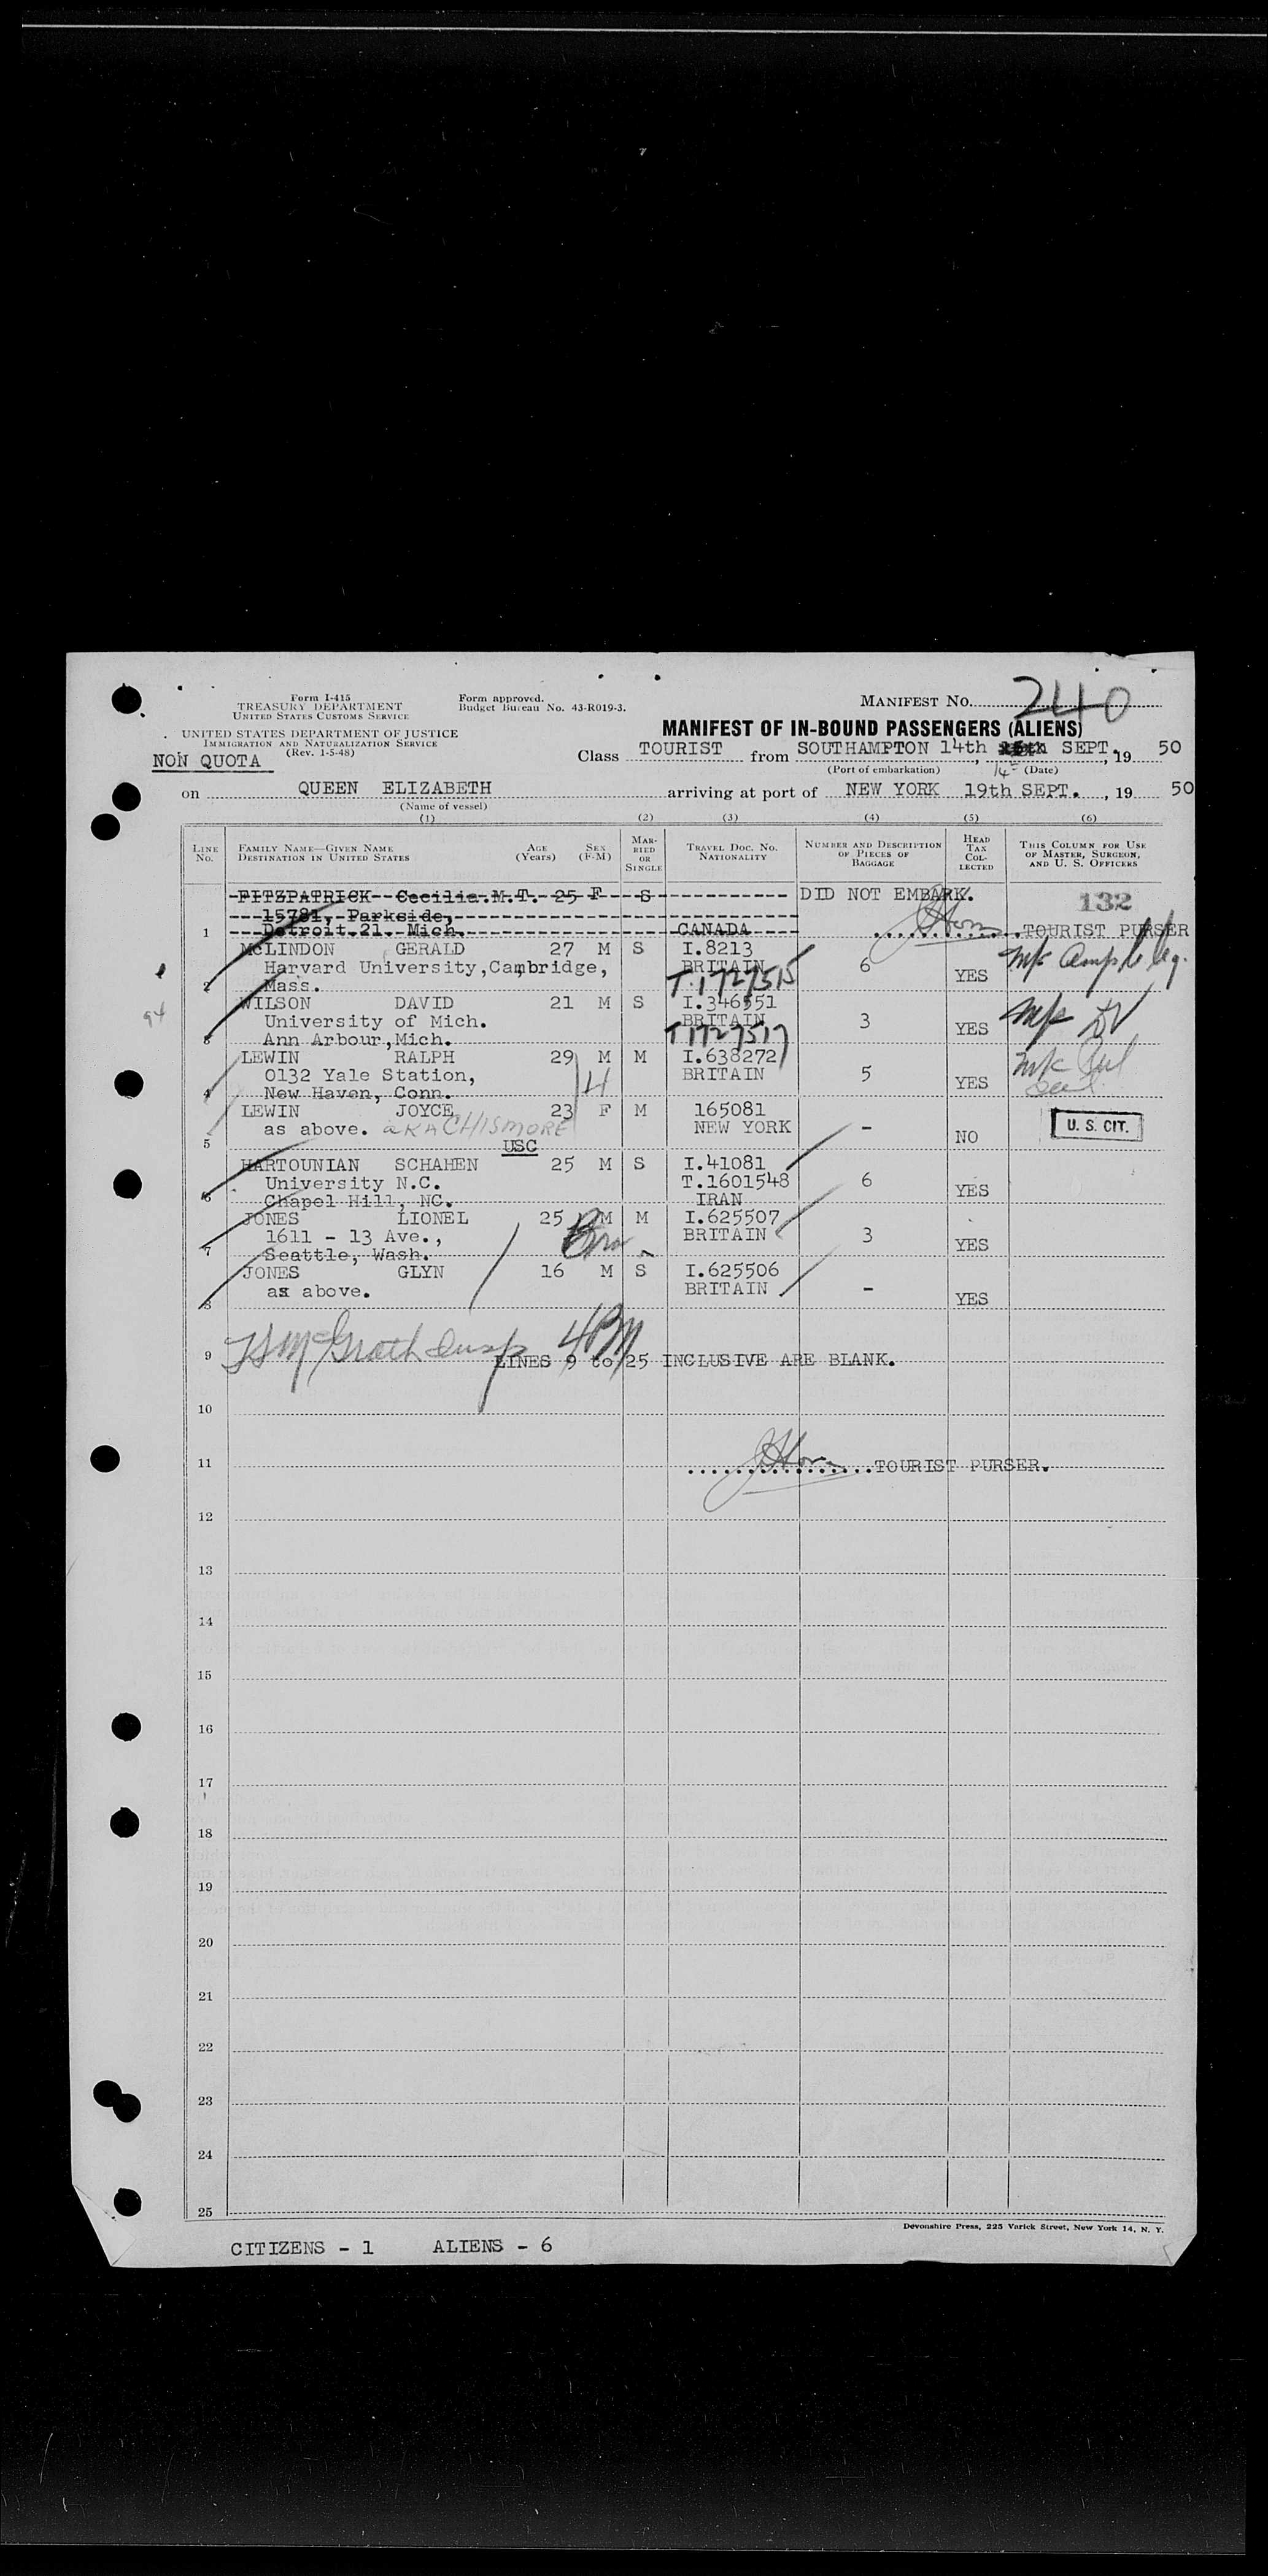 Form I-415
TREASURY DEPARTMENT
UNITED STATES CUSTOMS SERVICE
UNITED STATES DEPARTMENT OF JUSTICE
IMMIGRATION AND NATURALIZATION SERVICE
(Rev. 1-5-48)
NON QUOTA
Form approved.
Budget Bureau No. 43-R019-3.
MANIFEST NO. 240
MANIFEST OF IN-BOUND PASSENGERS (ALIENS)
Class TOURIST from SOUTHAMPTON 14th SEPT., 19 50
(Port of embarkation) 14th (Date)
on QUEEN ELIZABETH arriving at port of NEW YORK 19th SEPT., 19 50
(Name of vessel)
(1) (2) (3) (4) (5) (6)
LINE No. FAMILY NAME—GIVEN NAME DESTINATION IN UNITED STATES AGE (Years) SEX (F-M) MARRIED OR SINGLE TRAVEL DOC. NO. NATIONALITY NUMBER AND DESCRIPTION OF PIECES OF BAGGAGE HEAD TAX COLLECTED THIS COLUMN FOR USE OF MASTER, SURGEON, AND U. S. OFFICERS
FITZPATRICK Cecilia.M.T. 25 F S DID NOT EMBARK. 132
15781, Parkside,
1 Detroit.21. Mich. CANADA TOURIST PURSER
McLINDON GERALD 27 M S I.8213
Harvard University,Cambridge, BRITAIN 6 YES
2 Mass. T.1727515
WILSON DAVID 21 M S I.346551
University of Mich. BRITAIN 3 YES
3 Ann Arbour,Mich. T1727517
LEWIN RALPH 29 M M I.638272
0132 Yale Station, 4 BRITAIN 5 YES
4 New Haven, Conn.
LEWIN JOYCE 23 F M 165081
as above. aKA CHISMORE NEW YORK - NO U. S. CIT.
5 USC
HARTOUNIAN SCHAHEN 25 M S I.41081
University N.C. T.1601548 6 YES
6 Chapel Hill, NC. IRAN
JONES LIONEL 25 M M I.625507
1611 - 13 Ave., BRITAIN 3 YES
7 Seattle, Wash.
JONES GLYN 16 M S I.625506
as above. BRITAIN - YES
8
9 LINES 9 to 25 INCLUSIVE ARE BLANK.
10
11 TOURIST PURSER.
12
13
14
15
16
17
18
19
20
21
22
23
24
25
Devonshire Press, 225 Varick Street, New York 14, N. Y.
CITIZENS - 1 ALIENS - 6